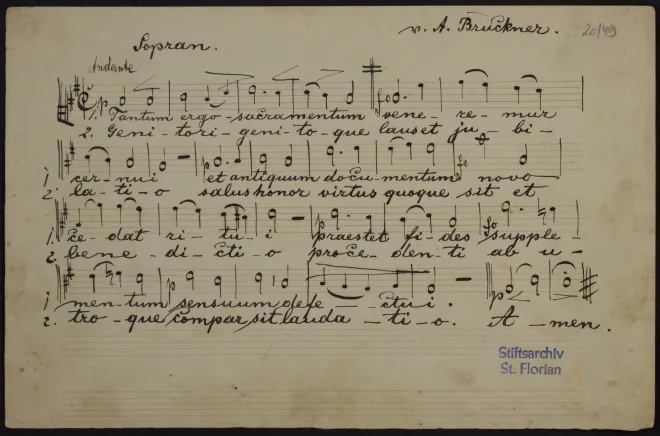 v. A. Bruckner.
20/49
Sopran.
Andante
1. Tantum ergo - sacramentum vene - re - mur
2. Geni - tori - geni - to - que lauset ju - bi -
1 cer - nui et antiquum documentum novo
2. la - ti - o salus honor virtus quoque sit et
1. ce - dat ri - tu - i praestet fi - des supple -
2 bene - di - cti - o proce - den - ti ab u -
1 men - tum sensuum defe - ctui.
2. tro - que compar sit lauda - ti - o. A - men.
Stiftsarchiv
St. Florian